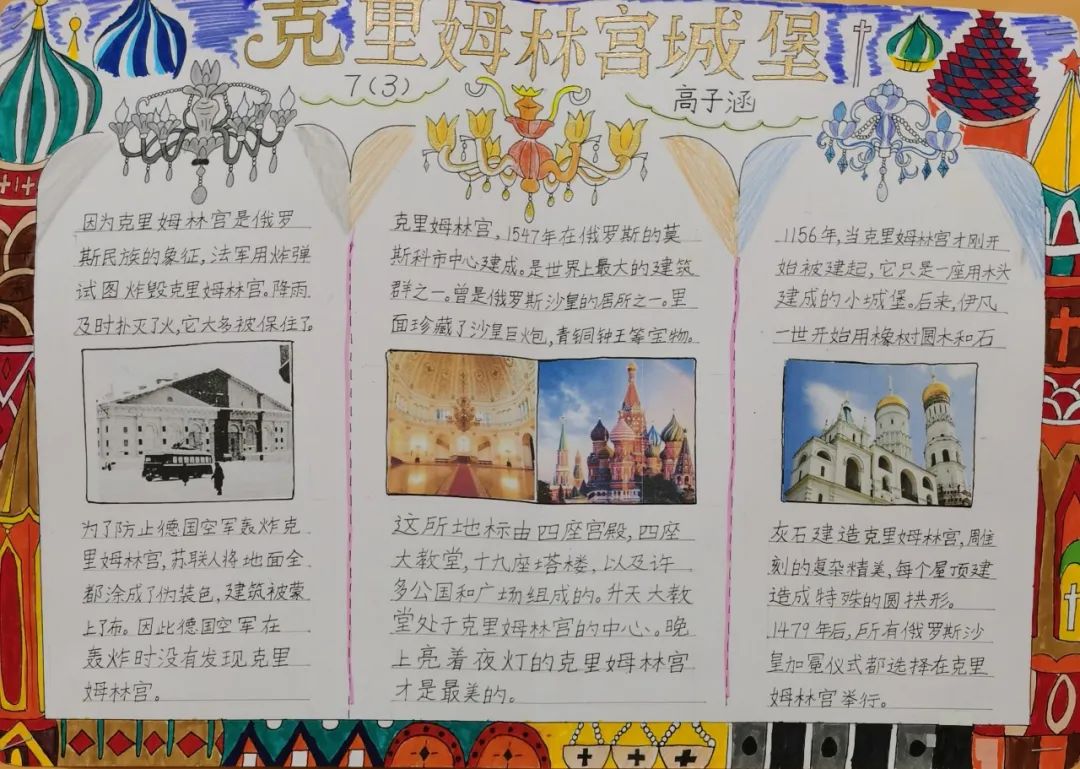 克里姆林宫城堡
7(3)
高子涵
因为克里姆林宫是俄罗
斯民族的象征,法军用炸弹
试图炸毁克里姆林宫。降雨
及时扑灭了火,它大多被保住了。
为了防止德国空军轰炸克
里姆林宫,苏联人将地面全
都涂成了伪装色,建筑被蒙
上了布。因此德国空军在
轰炸时没有发现克里
姆林宫。
克里姆林宫,1547年在俄罗斯的莫
斯科市中心建成。是世界上最大的建筑
群之一。曾是俄罗斯沙皇的居所之一。里
面珍藏了沙皇巨炮,青铜钟王等宝物。
这所地标由四座宫殿,四座
大教堂,十九座塔楼,以及许
多公园和广场组成的。升天大教
堂处于克里姆林宫的中心。晚
上亮着夜灯的克里姆林宫
才是最美的。
1156年,当克里姆林宫才刚开
始被建起,它只是一座用木头
建成的小城堡。后来,伊凡
一世开始用橡树圆木和石
灰石建造克里姆林宫,雕
刻的复杂精美,每个屋顶建
造成特殊的圆拱形。
1479年后,所有俄罗斯沙
皇加冕仪式都选择在克里
姆林宫举行。